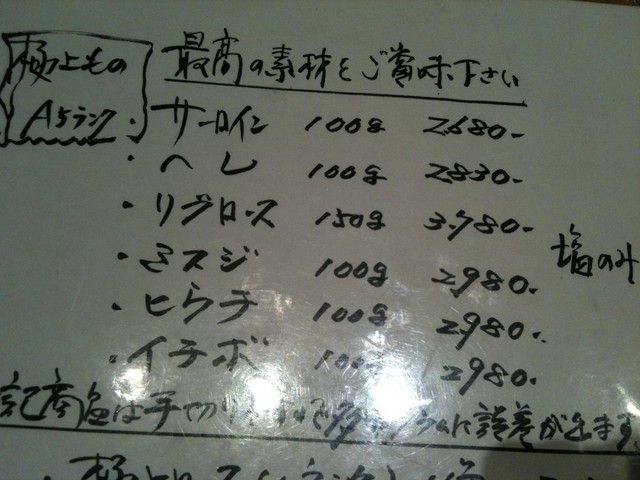 極上もの
A5ランク
最高の素材をご賞味下さい
・サーロイン 100g 2680-
・ヘレ 100g 2830-
・リブロース 150g 3.780-
・ミスジ 100g 2980-
・ヒウチ 100g 2980-
・イチボ 100g 2980-
塩のみ
記商品は手切り グラムに誤差が出ます